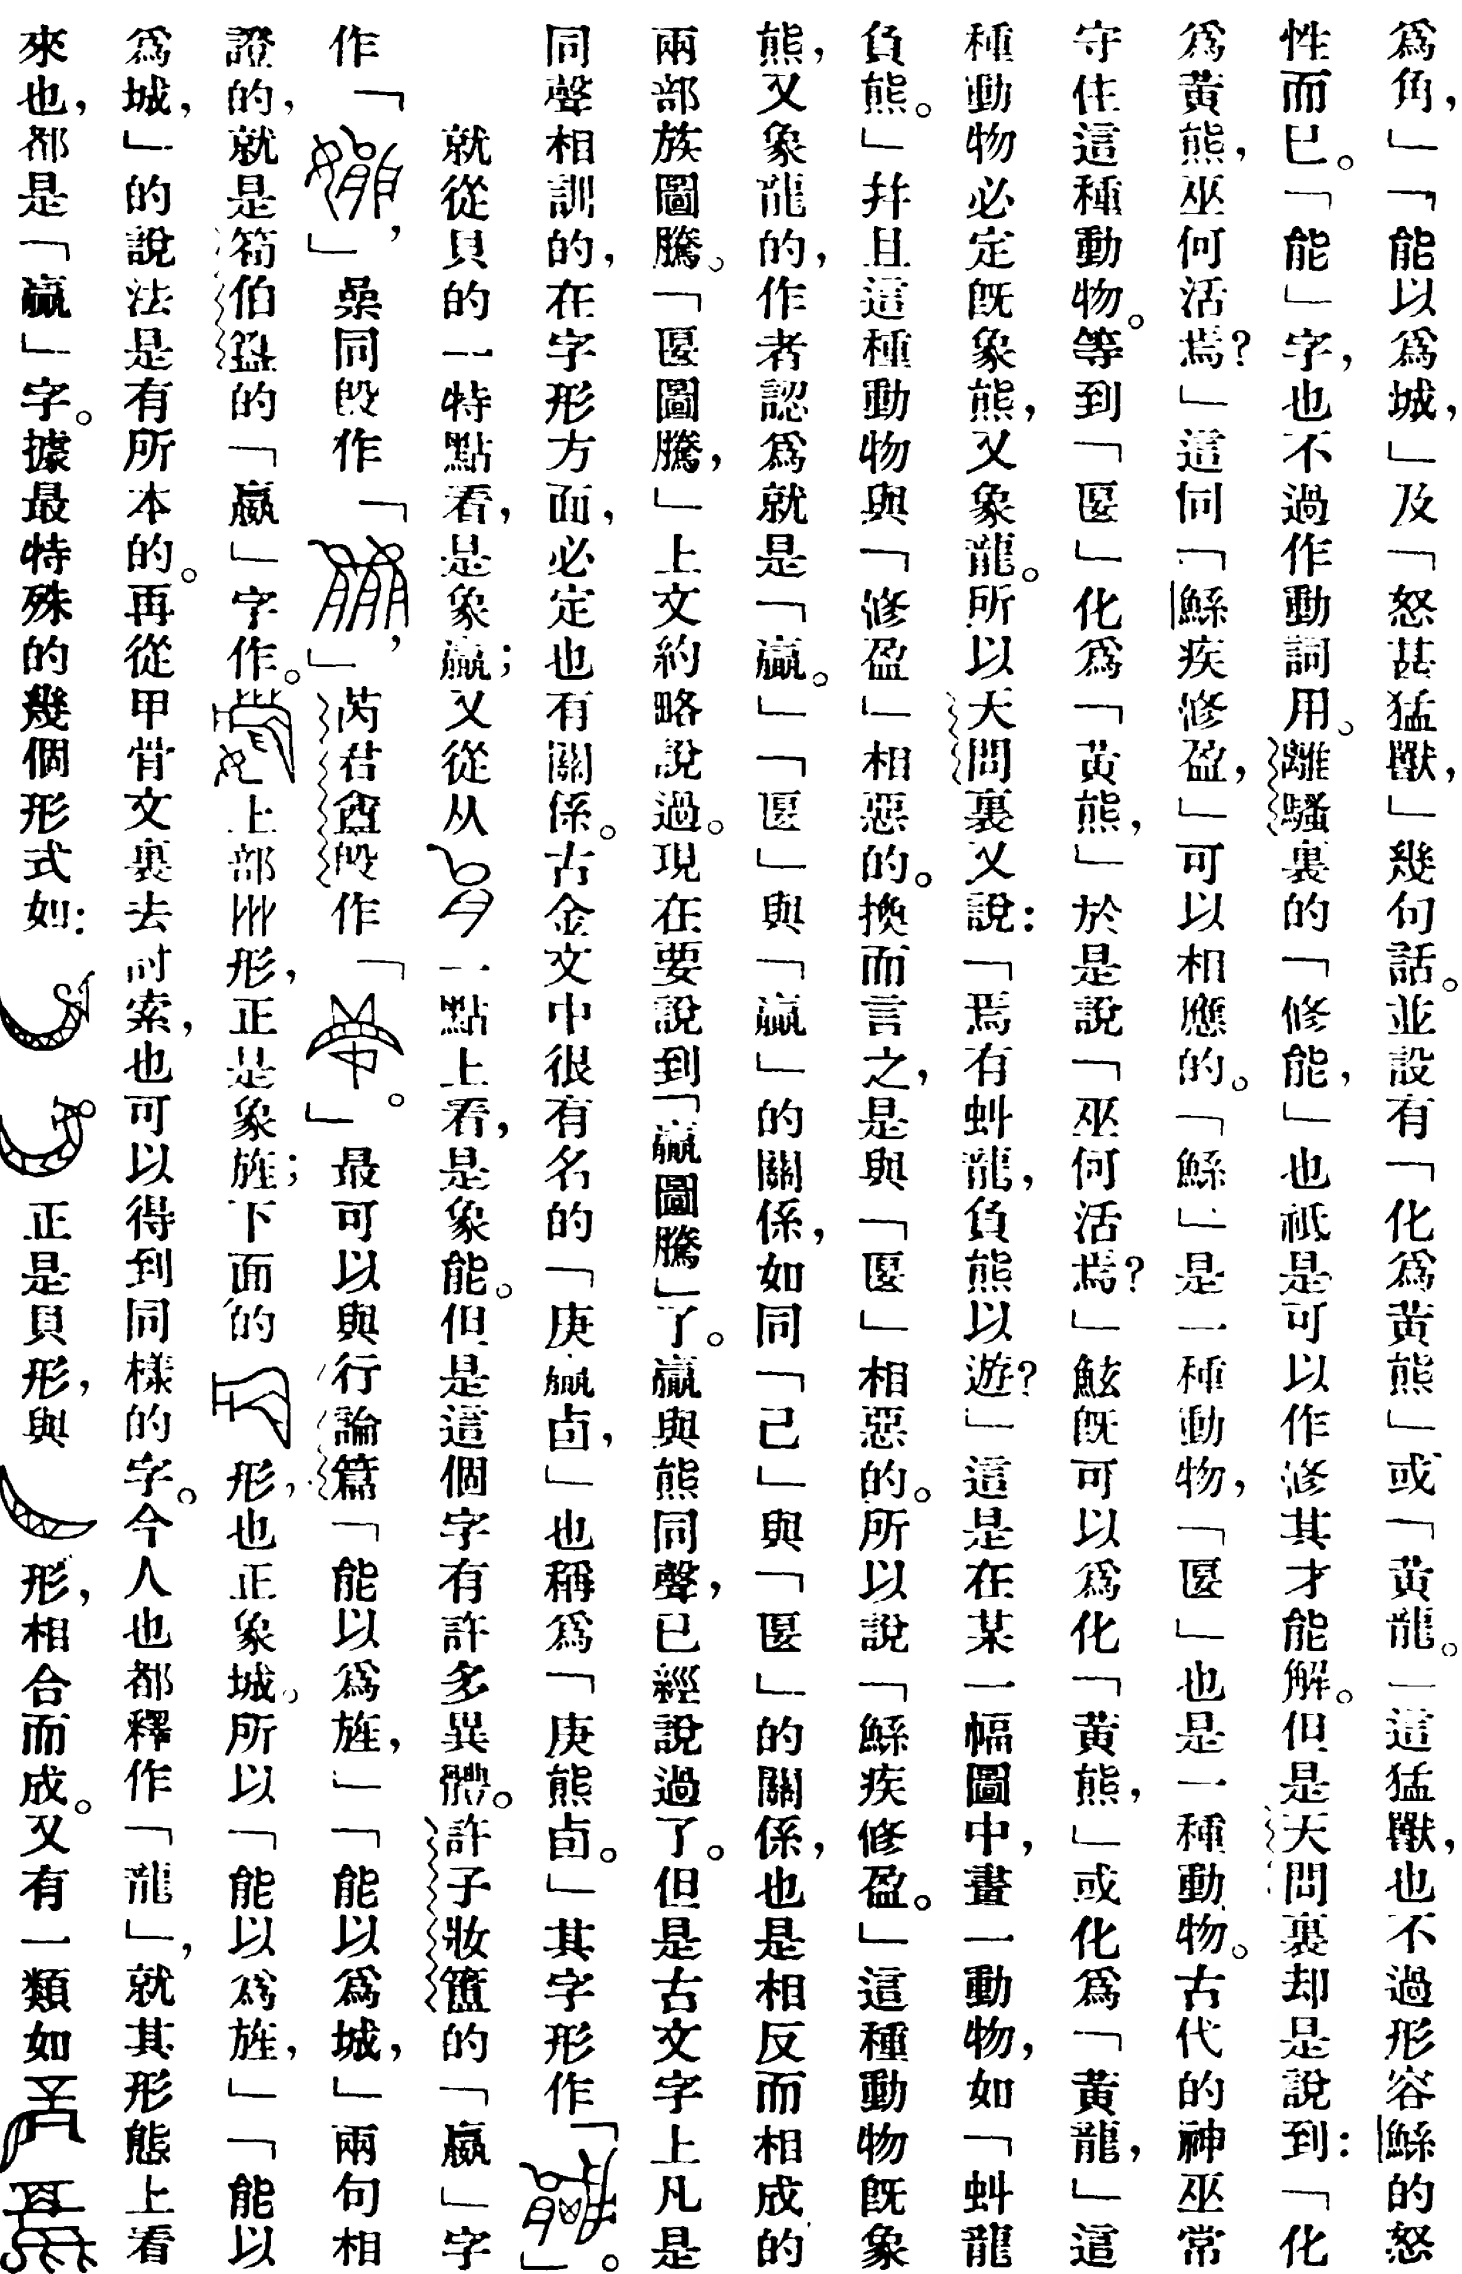 爲角，」「能以爲城，」及「怒甚猛獸，」幾句話。並設有「化爲黃熊」或「黃龍。」這猛獸，也不過形容鯀的怒
性而已。「能」字，也不過作動詞用。離騷裏的「修能，」也祇是可以作修其才能解。但是天問裏却是說到：「化
爲黃熊，巫何活焉？」這何「鯀疾修盈，」可以相應的。「鯀」是一種動物，「匽」也是一種動物。古代的神巫常
守住這種動物。等到「匽」化爲「黃熊，」於是說「巫何活焉？」鮌既可以爲化「黃熊，」或化爲「黃龍，」這
種動物必定既象熊，又象龍。所以天問裏又說：「焉有虯龍，負熊以遊？」這是在某一幅圖中，畫一動物，如「虯龍
負熊。」幷且這種動物與「修盈」相惡的。換而言之，是與「匽」相惡的。所以說「鯀疾修盈。」這種動物既象
熊，又象龍的，作者認爲就是「贏。」「匽」與「贏」的關係，如同「己」與「匽」的關係，也是相反而相成的
兩部族圖騰。「匽圖騰，」上文約略說過。現在要說到「贏圖騰」了。贏與熊同聲，已經說過了。但是古文字上凡是
同聲相訓的，在字形方面，必定也有關係。古金文中很有名的「庚贏卣，」也稱爲「庚熊卣。」其字形作「」。
就從貝的一特點看，是象贏；又從从一點上看，是象能。但是這個字有許多異體。許子妝簠的「嬴」字
作「」，桑同𣪘作「」，芮君盦𣪘作「」。最可以與行論篇「能以爲旌，」「能以爲城，」兩句相
證的，就是筍伯盨的「嬴」字作。上部形，正是象旌；下面的形，也正象城。所以「能以爲旌，」「能以
爲城，」的說法是有所本的。再從甲骨文裏去討索，也可以得到同樣的字。今人也都釋作「龍」，就其形態上看
來也，都是「贏」字。據最特殊的幾個形式如：正是貝形，與形，相合而成。又有一類如